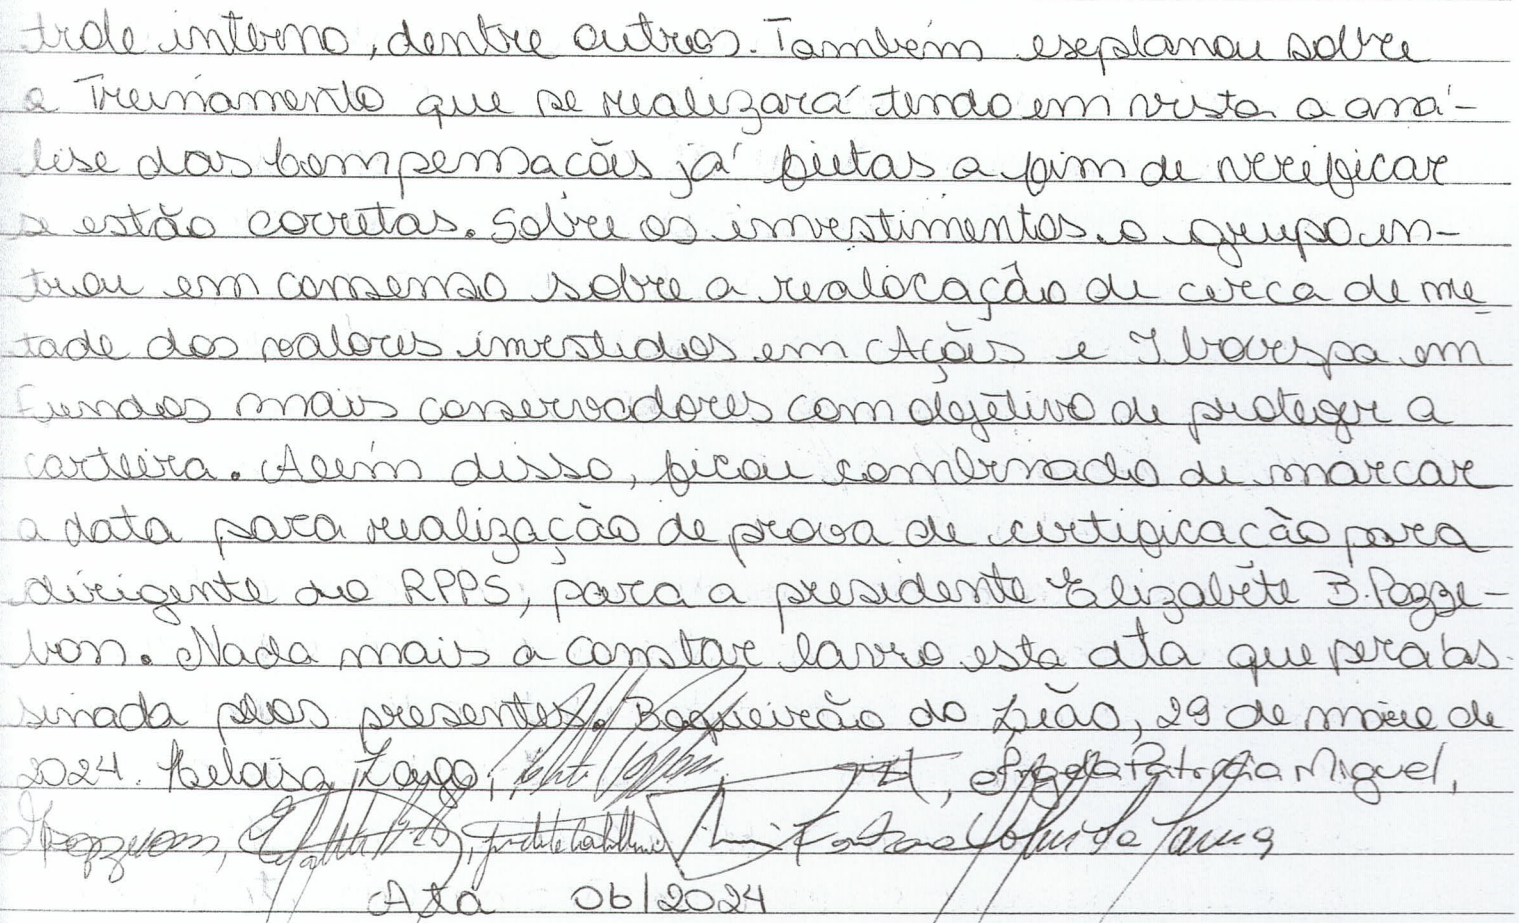 trole interno, dentre outros. Também esplanou sobre
o Treinamento que se realizará tendo em vista a aná-
lise das Compensações já feitas a fim de verificar
se estão corretas. Sobre os investimentos o grupo en-
trou em consenso sobre a realocação de cerca de me
tade dos valores investidos em Ações e Ibovespa em
fundos mais conservadores com objetivo de proteger a
carteira. Além disso, ficou combinado de marcar
a data para realização de prova de certificação para
dirigente do RPPS, para a presidente Elizabete B. Pozze-
bon. Nada mais a constar lavro esta ata que será as
sinada pelos presentes. Boqueirão do Leão, 29 de maio de
2024. Heloisa Zago, Patricia Miguel,
Ata 06/2024